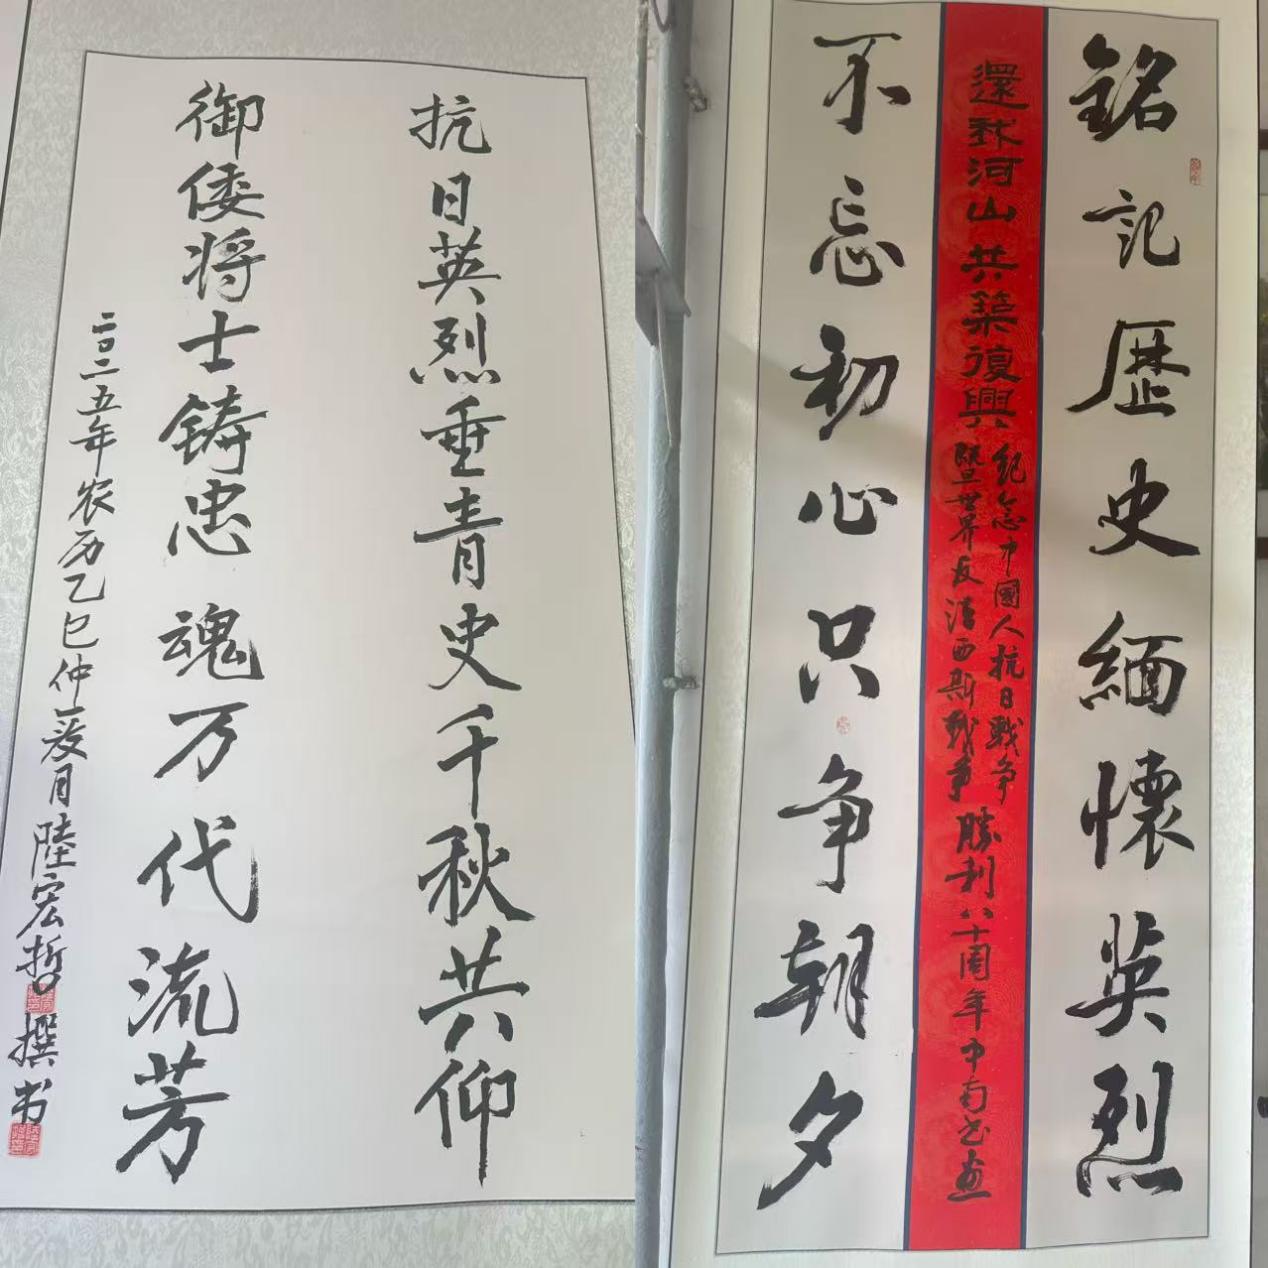 抗日英烈垂青史千秋共仰
御倭将士铸忠魂万代流芳
二〇二五年农历乙巳仲夏月陸宏哲撰书
銘記歷史緬懷英烈
還我河山共築復興
紀念中國人抗日戰争
暨世界反法西斯戰争
勝利八十周年中南书画
不忘初心只争朝夕